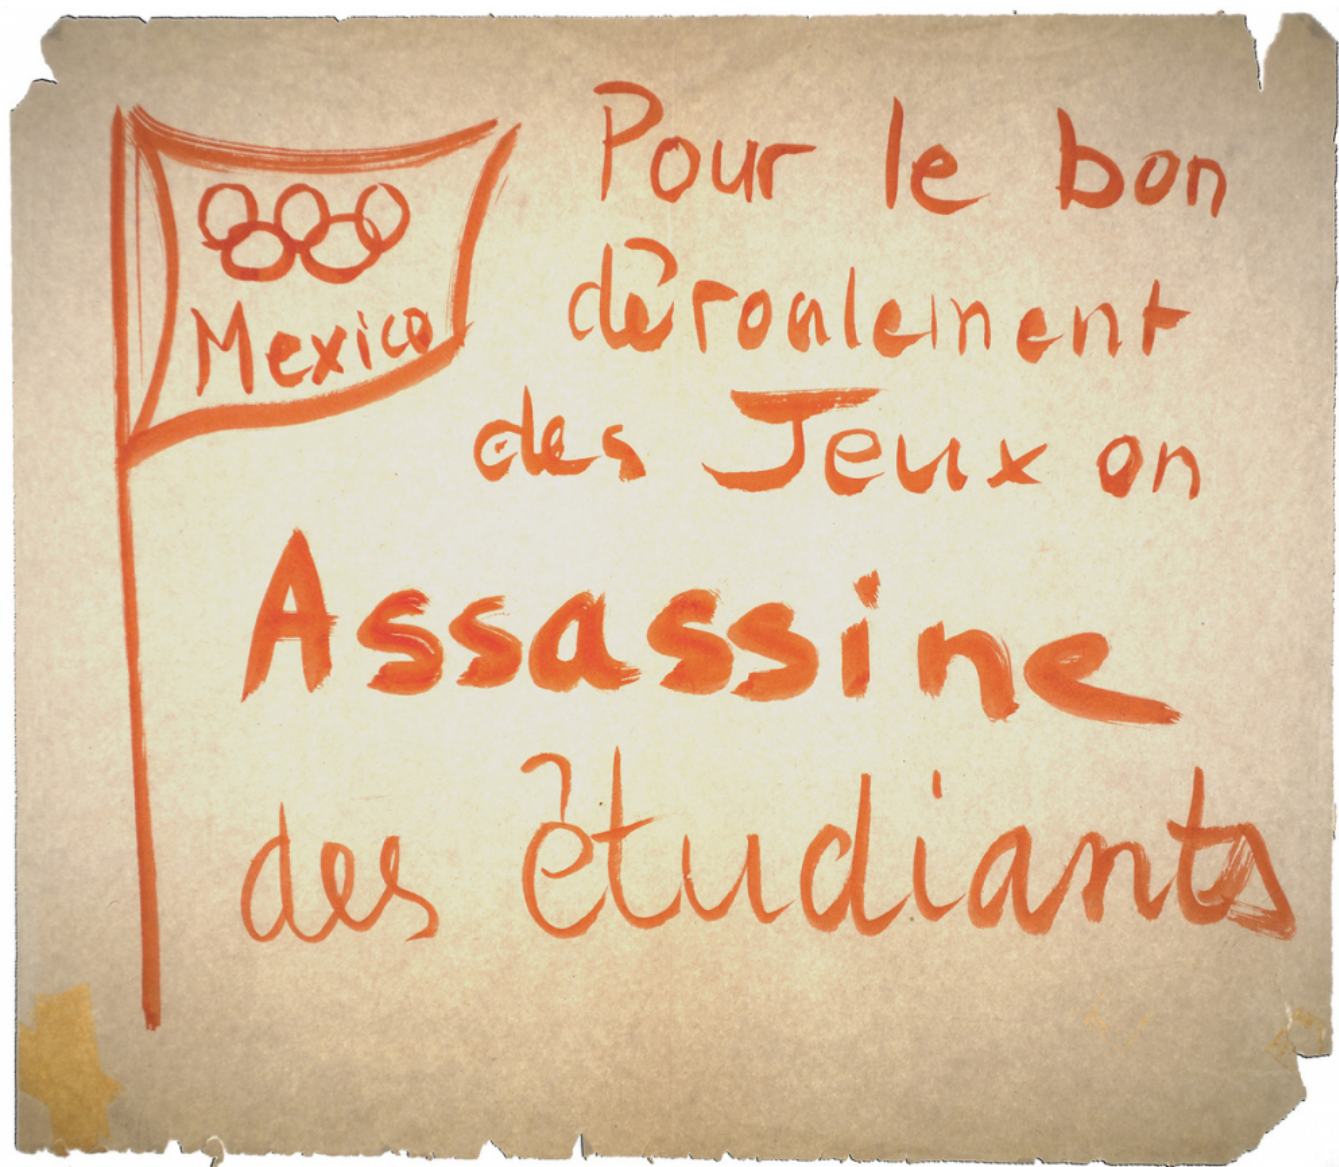 Mexico
Pour le bon
déroulement
des Jeux on
Assassine
des étudiants